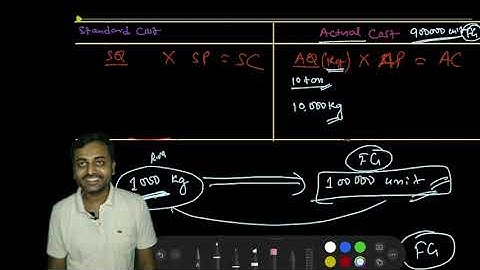 Standard Cost
Actual Cast 900000 unit FG
SQ X SP = SC
AQ (kg) X AP = AC
10 ton
10,000 kg
RM
FG
1000 kg
100000 unit
FG